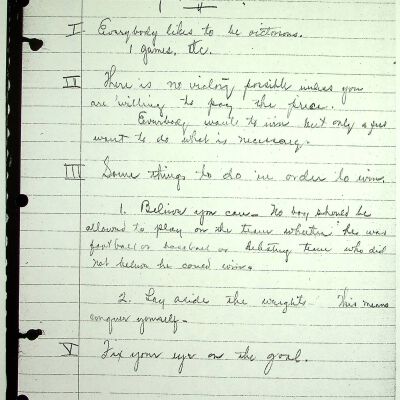 I Everybody likes to be victorious.
1 games, etc.
II There is no victory possible unless you
are willing to pay the price.
Everybody wants to win but only a few
want to do what is necessary.
III Some things to do in order to win.
1. Believe you can - No boy should be
allowed to play on the team whether he was
football or baseball or debating team who did
not believe he could win.
2. Lay aside the weights This means
conquer yourself -
V Fix your eye on the goal.